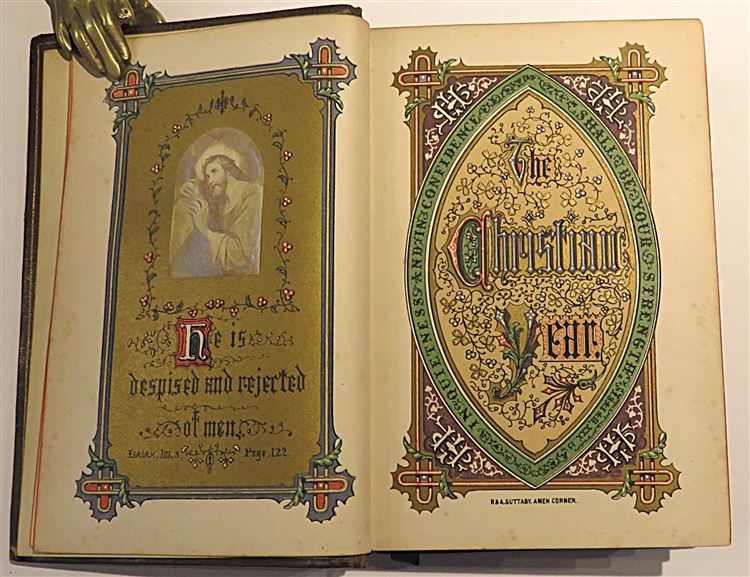 He is
despised and rejected
of men.
Isaiah, liii, 3 Page, 122.
The
Christian
Year.
IN QUIETNESS AND IN CONFIDENCE SHALL BE YOUR STRENGTH
IHS
IHS
IHS
IHS
R & A. SUTTABY, AMEN CORNER.